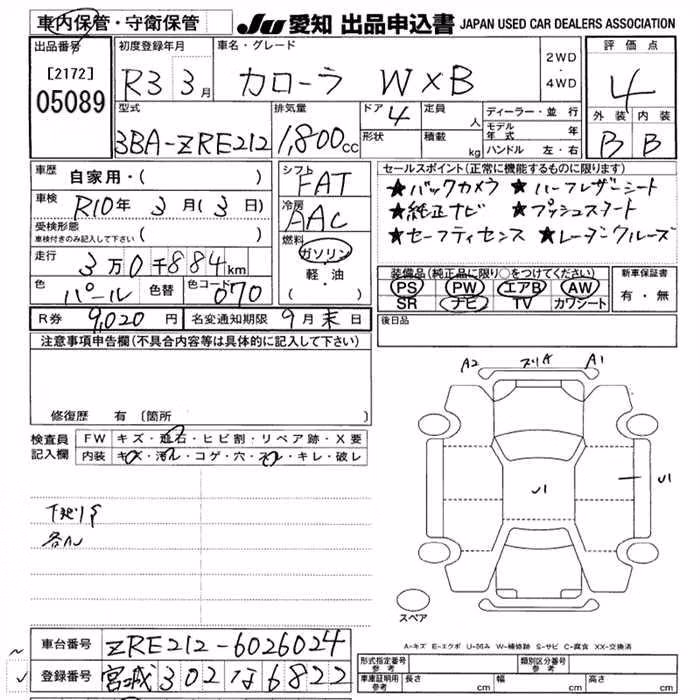 車内保管・守衛保管
JU 愛知 出品申込書 JAPAN USED CAR DEALERS ASSOCIATION
出品番号 [2172] 05089
初度登録年月 R3 3月
車名・グレード カローラ W×B
2WD
4WD
評価点 4
外装 B 内装 B
型式 3BA-ZRE212
排気量 1,800cc
ドア 4
形状
定員 人
積載 kg
ディーラー・並行
モデル年式 年
ハンドル 左・右
車歴 自家用・( )
車検 R10年 3月(3日)
受検形態 車検付きのみ記入して下さい ( )
走行 3万0千884km
色 パール 色替 色コード 070
シフト FAT
冷房 AAC
燃料 ガソリン
軽・油
( )
セールスポイント(正常に機能するものに限ります)
★バックカメラ ★ハーフレザーシート
★純正ナビ ★プッシュスタート
★セーフティセンス ★レーダークルーズ
装備品(純正品に限り○をつけてください)
PS PW エアB AW
SR ナビ TV カワシート
新車保証書
有・無
R券 9,020円 名変通知期限 9月末日
後日品
注意事項申告欄(不具合内容等は具体的に記入して下さい)
修復歴 有 [箇所 ]
検査員記入欄
FW キズ・飛石・ヒビ割・リペア跡・X要
内装 キズ・汚レ・コゲ・穴・スレ・キレ・破レ
A2 スリK A1
スペア
A-キズ E-エクボ U-凹み W-補修跡 S-サビ C-腐食 XX-交換済
車台番号 ZRE212-6026024
登録番号 宮城 302 な 6822
形式指定番号 参考
類別区分番号 参考
車庫証明用 参考 長さ cm 幅 cm 高さ cm